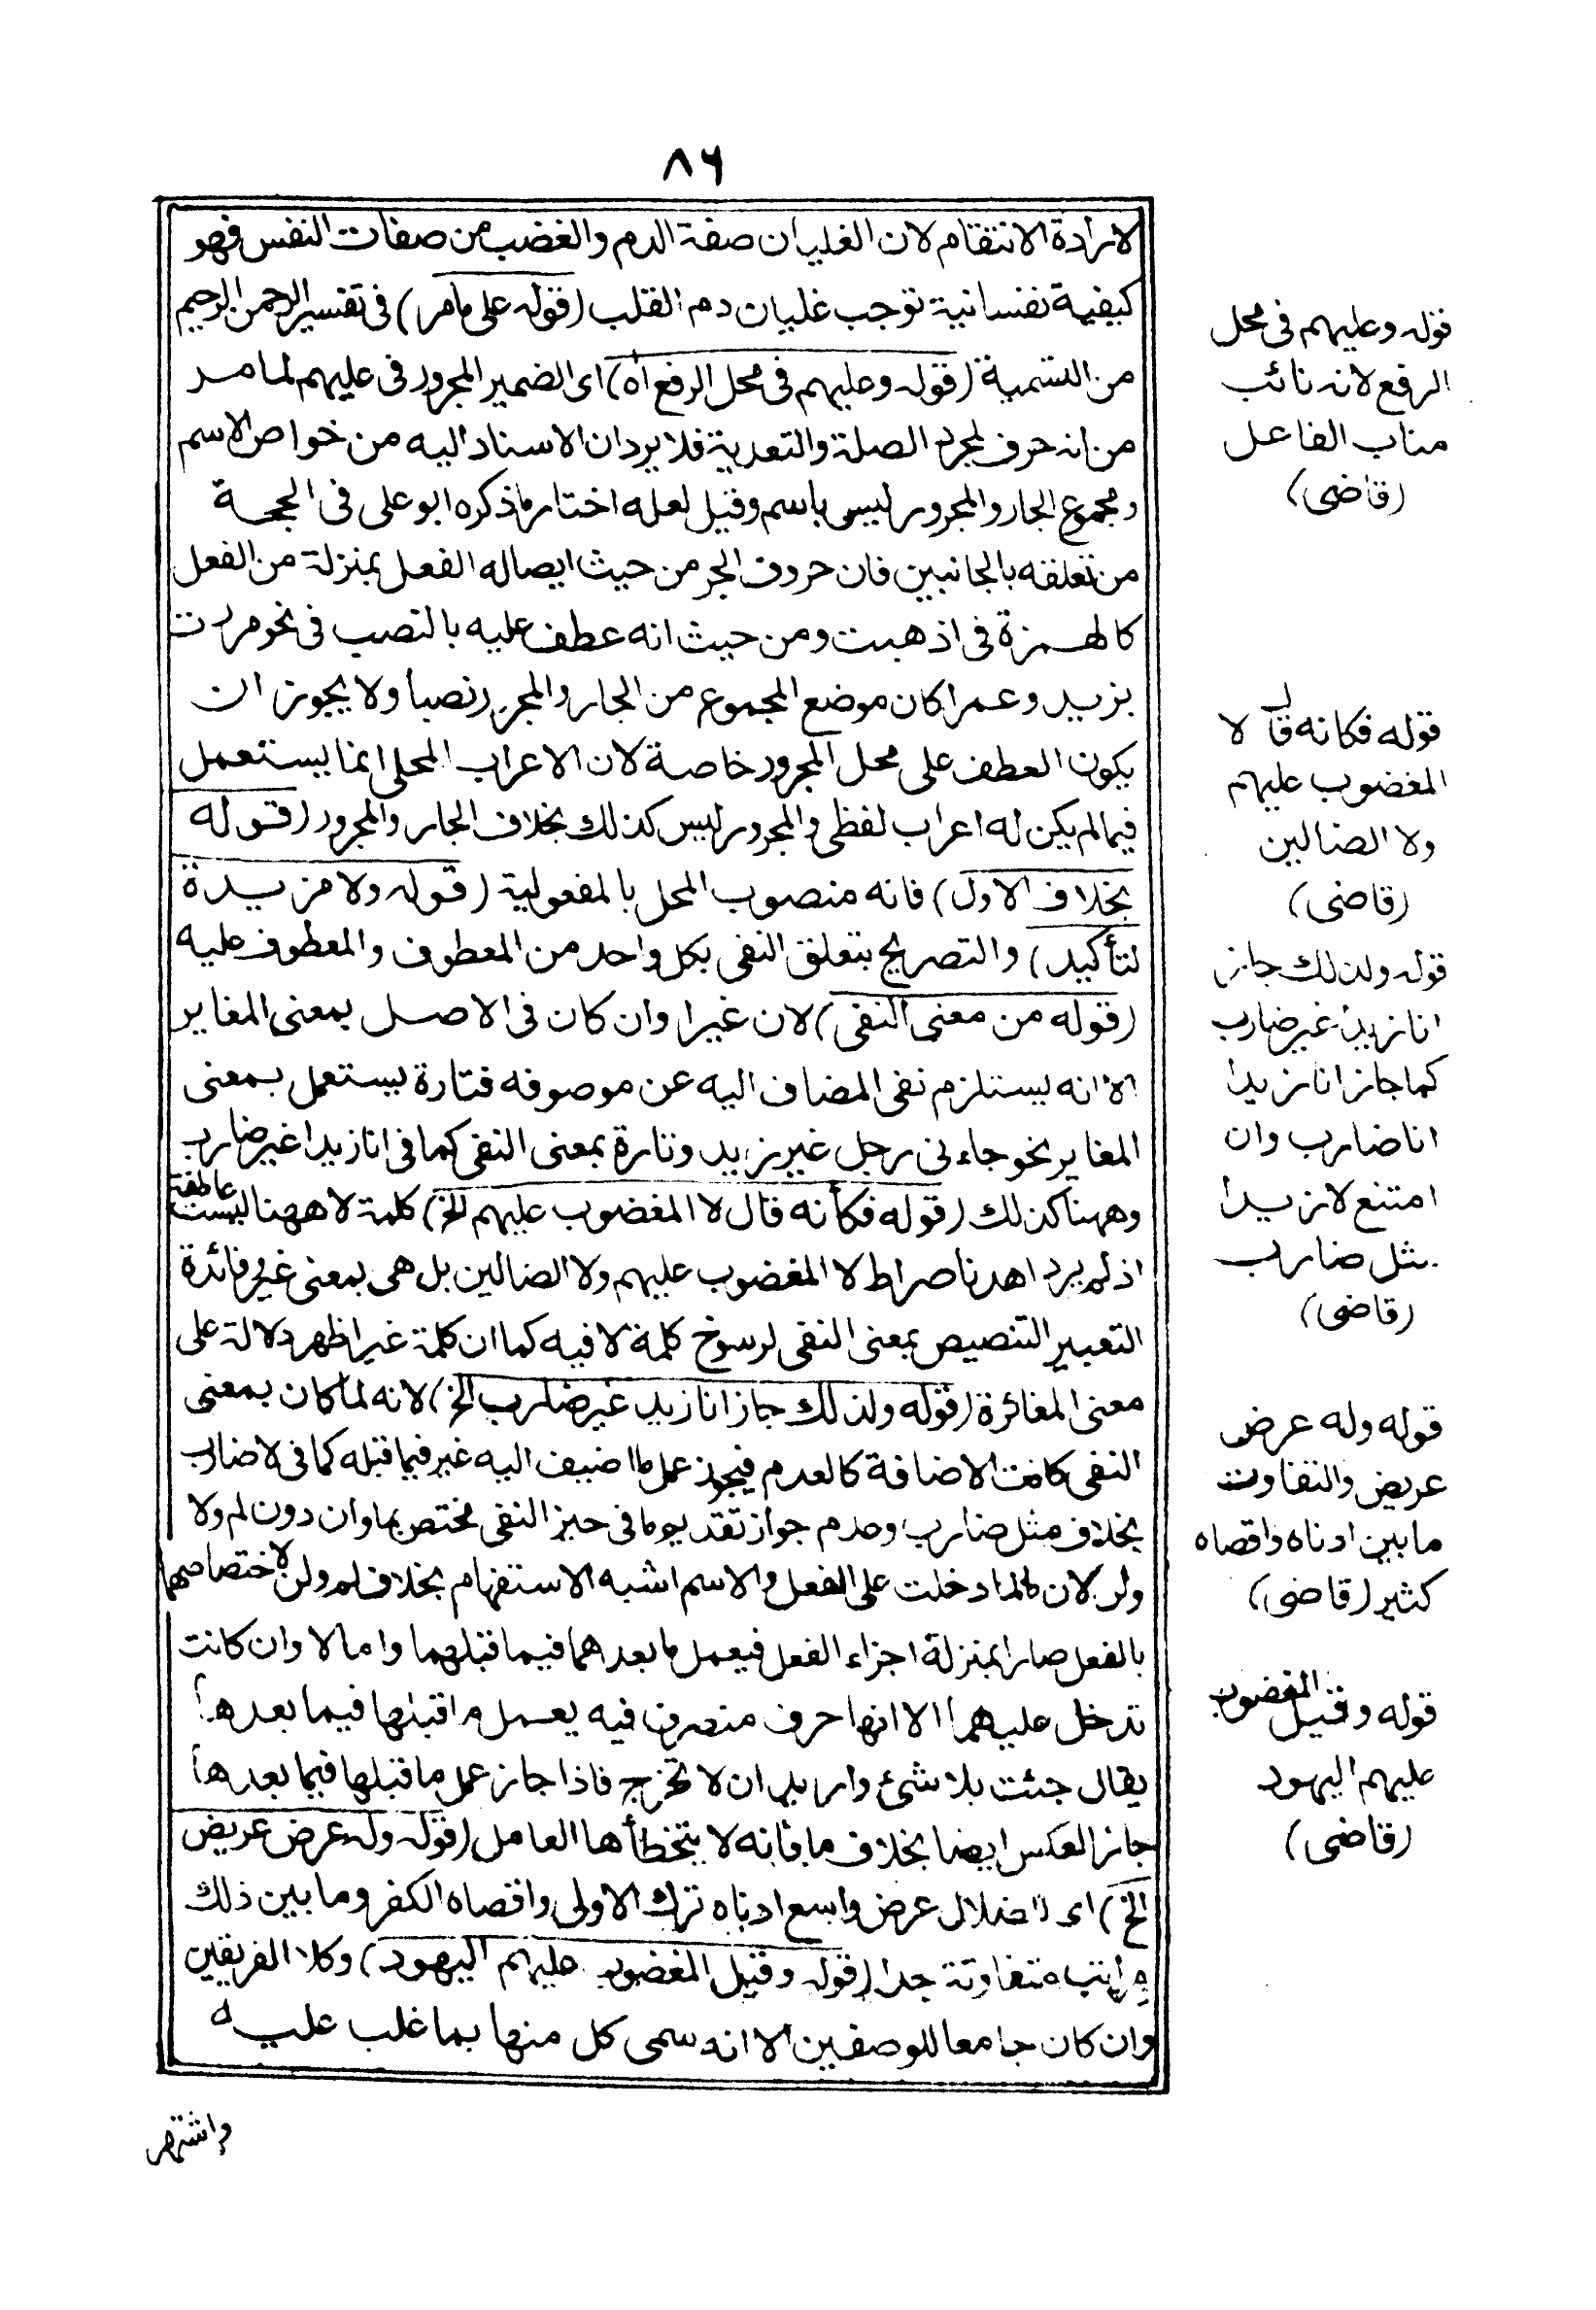 ٨٦
لارادة الانتقام لان الغليان صفة الدم والغضب من صفات النفس فهو
كيفية نفسانية توجب غليان دم القلب (قوله على مامر) فى تفسير الرحمن الرحيم
من التسمية (قوله وعليهم فى محل الرفع اه) اى الضمير المجرور فى عليهم لما مر
من انه حرف لمجرد الصلة والتعدية فلا يرد ان الاسناد اليه من خواص الاسم
ومجموع الجار والمجرور ليس باسم وقيل لعله اختار ماذكره ابو على فى الحجة
من تعلقه بالجانبين فان حروف الجر من حيث ايصاله الفعل بمنزلة من الفعل
كالهمزة فى اذهبت ومن حيث انه عطف عليه بالنصب فى نحو مررت
بزيد وعمرا كان موضع المجموع من الجار والمجرر نصبا ولا يجوز ان
يكون العطف على محل المجرور خاصة لان الاعراب المحلى انما يستعمل
فيما لم يكن له اعراب لفظى والمجرور ليس كذلك بخلاف الجار والمجرور (قوله
بخلاف الاول) فانه منصوب المحل بالمفعولية (قوله ولا مزيدة
لتأكيد) والتصريح بتعلق النفى بكل واحد من المعطوف والمعطوف عليه
(قوله من معنى النفى) لان غيرا وان كان فى الاصل بمعنى المغاير
الا انه يستلزم نفى المضاف اليه عن موصوفه فتارة يستعمل بمعنى
المغاير نحو جاءنى رجل غير زيد وتارة بمعنى النفى كما فى انا زيدا غير ضارب
وههنا كذلك (قوله فكأنه قال لا المغضوب عليهم الخ) كلمة لا ههنا ليست عاطفة
اذ لم يرد اهدنا صراط لا المغضوب عليهم ولا الضالين بل هى بمعنى غير فائدة
التعبير التنصيص بمعنى النفى لرسوخ كلمة لا فيه كما ان كلمة غير اظهر دلالة على
معنى المغائرة (قوله ولذلك جاز انا زيد غير ضارب الخ) لانه لما كان بمعنى
النفى كانت الاضافة كالعدم فيجوز عمل ما اضيف اليه غير فيما قبله كما فى لا ضارب
بخلاف مثل ضارب وعدم جواز تقديم ما فى حيز النفى مختص بما وان دون لم ولا
ولن لان ما لما دخلت على الفعل والاسم اشبه الاستفهام بخلاف لم ولن لاختصاصهما
بالفعل صارا بمنزلة اجزاء الفعل فيعمل ما بعدهما فيما قبلهما واما لا وان كانت
تدخل عليهما الا انها حرف متصرف فيه يعمل ما قبلها فيما بعدها
يقال جئت بلا شئ واريد ان لا تخرج فاذا جاز عمل ما قبلها فيما بعدها
جاز العكس ايضا بخلاف ما فانه لا يتخطأها العامل (قوله وله عرض عريض
الخ) اى للضلال عرض واسع ادناه ترك الاولى واقصاه الكفر وما بين ذلك
مراتب متفاوتة جدا (قوله وقيل المغضوب عليهم اليهود) وكلا الفريقين
وان كان جامعا للوصفين الا انه سمى كل منها بما غلب عليه
واشتهر
قوله وعليهم فى محل
الرفع لانه نائب
مناب الفاعل
(قاضى)
قوله فكانه قال لا
المغضوب عليهم
ولا الضالين
(قاضى)
قوله ولذلك جاز
انا زيدا غير ضارب
كما جاز انا زيدا
انا ضارب وان
امتنع لا زيدا
مثل ضارب
(قاضى)
قوله وله عرض
عريض والتفاوت
ما بين ادناه واقصاه
كثير (قاضى)
قوله وقيل المغضوب
عليهم اليهود
(قاضى)